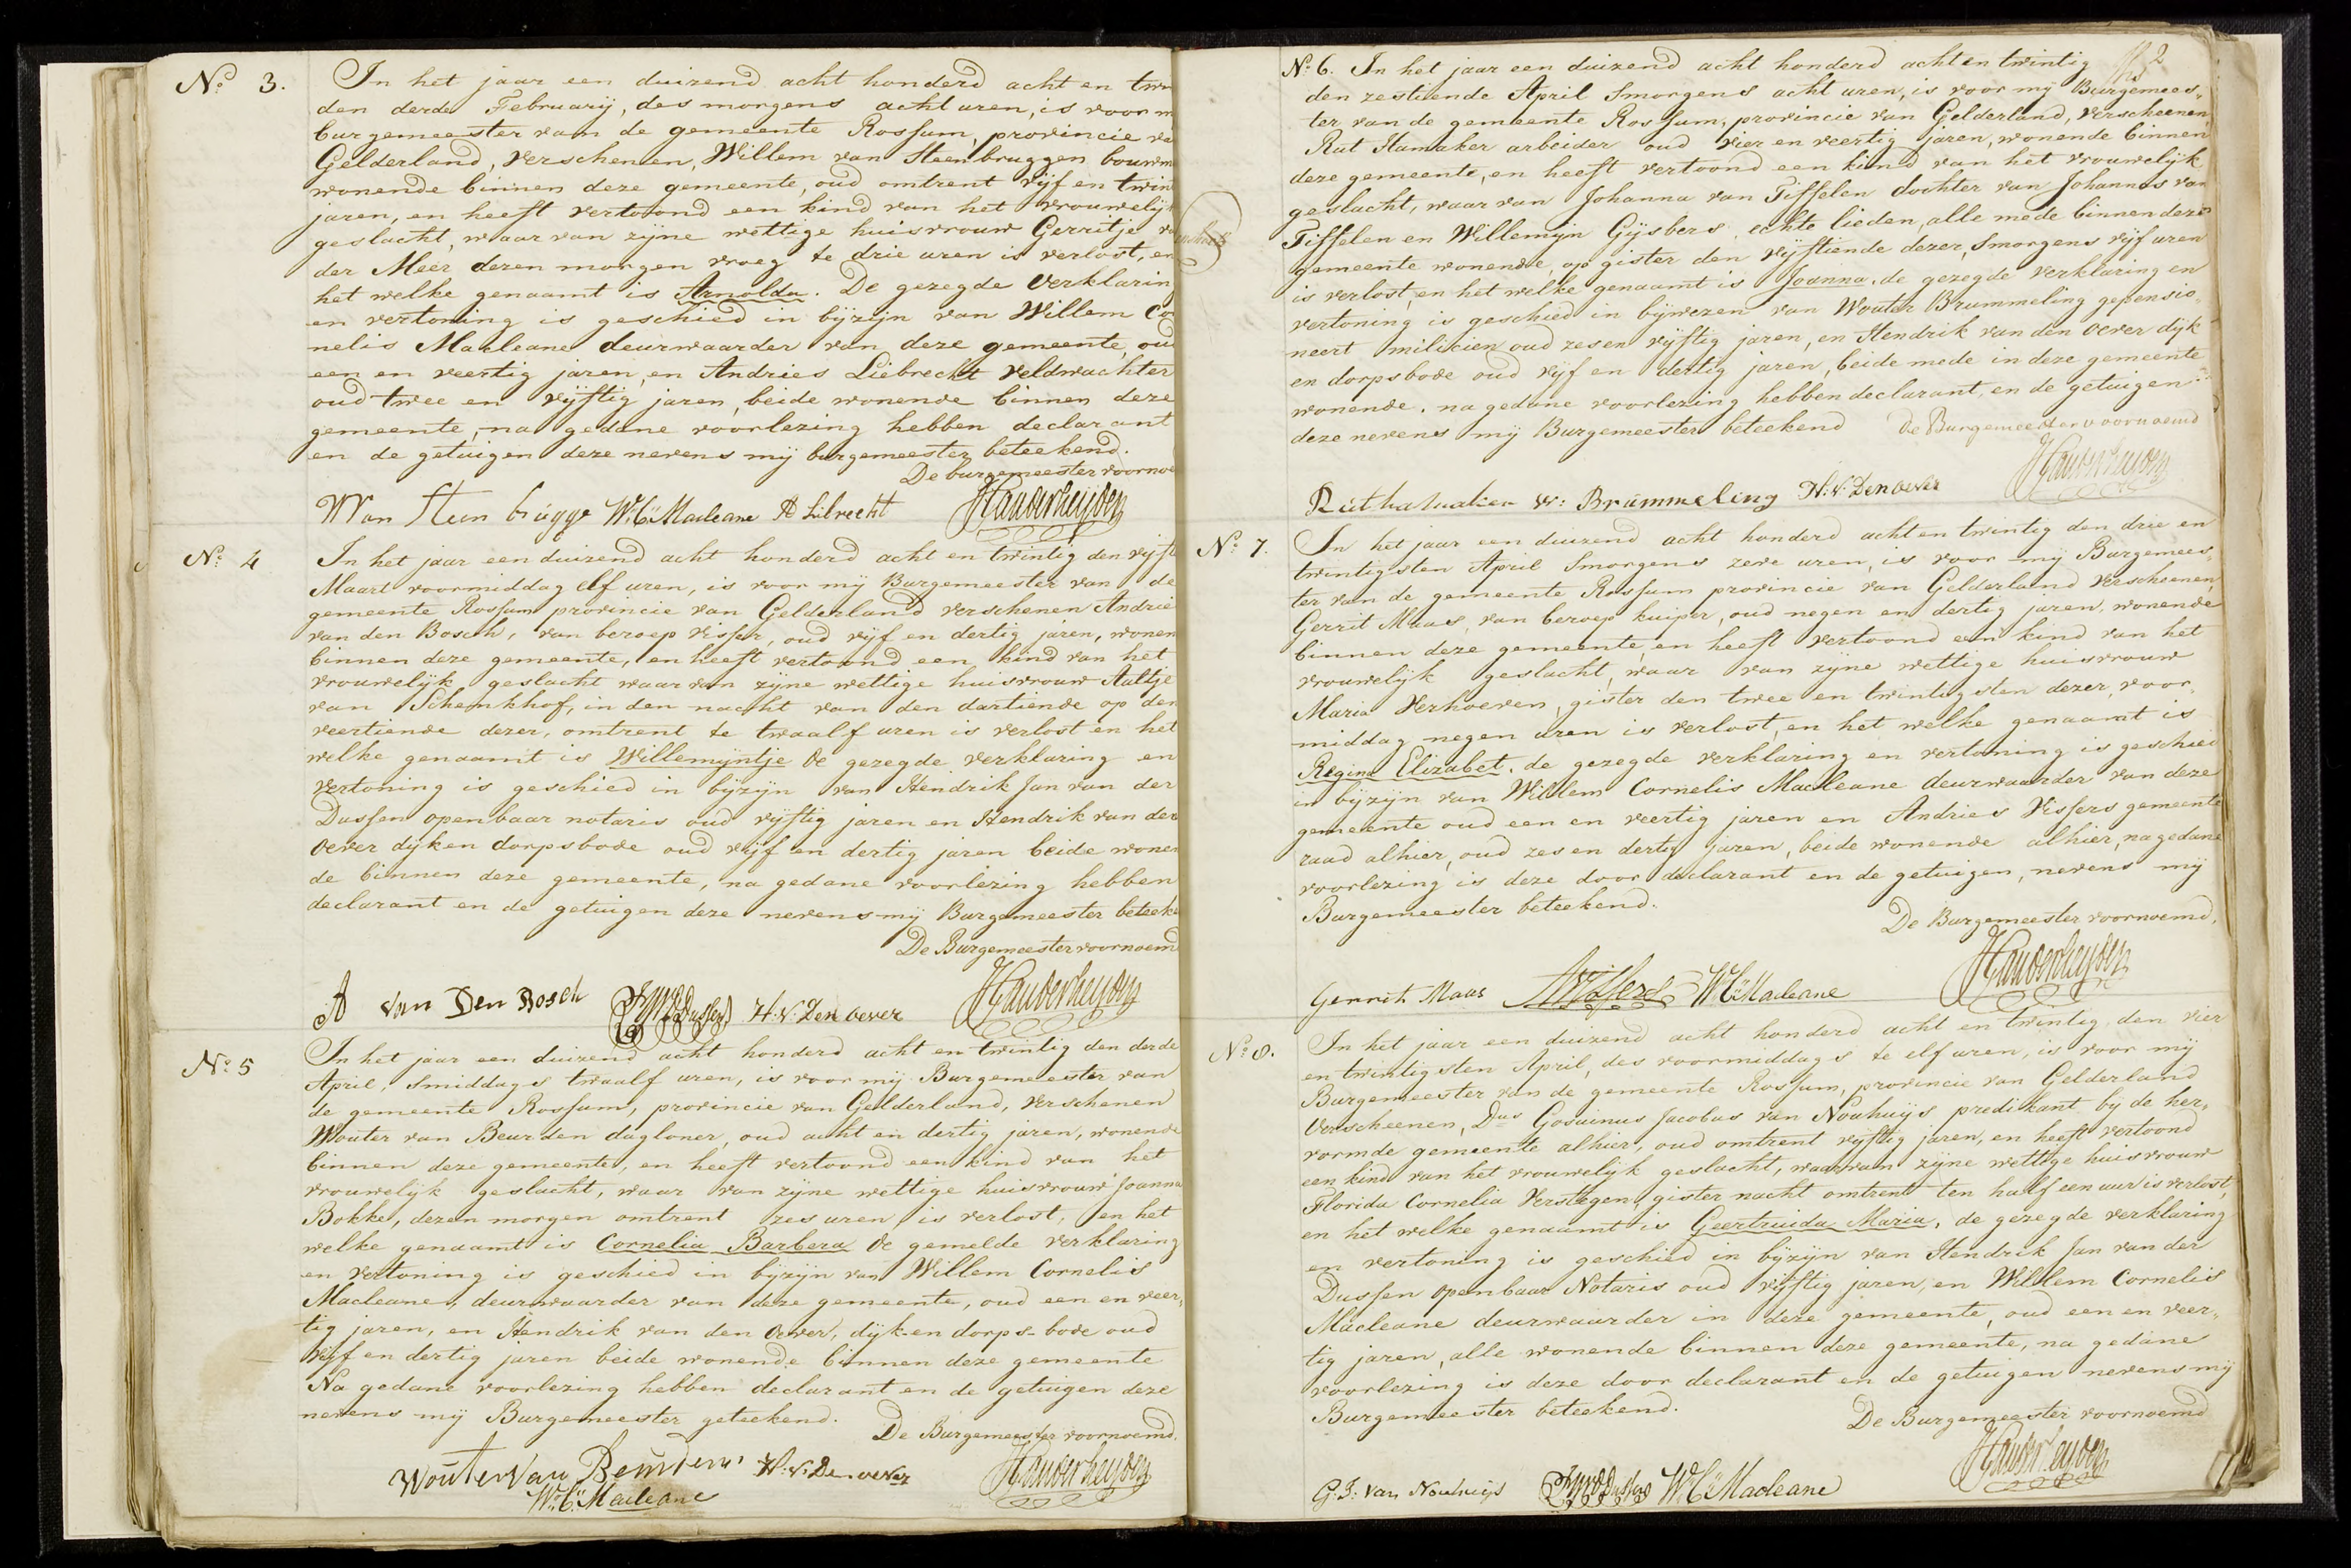 No 3. In het jaar een duizend acht honderd acht en twin
den derde February, des morgens acht uren, is voor m
burgemeester van de gemeente Rossum, provincie va
Gelderland, verschenen, Willem van Steenbruggen bouwm
wonende binnen deze gemeente, oud omtrent vijf en twin
jaren, en heeft vertoond een kind van het vrouwelijk
geslacht, waar van zijne wettige huisvrouw Gerritje v
der Meer dezen morgen vroeg te drie uren is verlost, en
het welke genaamt is Arnolda. De gezegde verklarin
en vertoning is geschied in bijzijn van Willem Cor
nelis Macleane deurwaarder van deze gemeente, oud
een en veertig jaren, en Andries Liebrecht veldwachter
oud twee en vijftig jaren, beide wonende binnen deze
gemeente, na gedane voorlezing hebben declarant
en de getuigen deze nevens mij burgemeester beteekend.
De burgemeester voornoe
W van Steenbrugge W.C. Macleane A Librecht JHanderheijden
No 4 In het jaar een duizend acht honderd acht en twintig den vijft
Maart voormiddag elf uren, is voor mij Burgemeester van de
gemeente Rossum provincie van Gelderland verschenen Andrie
van den Bosch, van beroep visser, oud vijf en dertig jaren, wonen
binnen deze gemeente, en heeft vertoond een kind van het
vrouwelijk geslacht waar van zijne wettige huisvrouw Aaltje
van Schenkhof, in den nacht van den dartiende op den
veertiende dezer, omtrent te twaalf uren is verlost en het
welke genaamt is Willemijntje de gezegde verklaring en
vertoning is geschied in bijzijn van Hendrik Jan van der
Dussen openbaar notaris oud vijftig jaren en Hendrik van den
Oever dijk en dorpsbode oud vijf en dertig jaren beide wonen
de binnen deze gemeente, na gedane voorlezing hebben
declarant en de getuigen deze nevens mij Burgemeester beteeke
De Burgemeester voornoemd
A van Den Bosch HJVDDussen H.V. Den oever JHanderheijden
No 5 In het jaar een duizend acht honderd acht en twintig den derde
April, smiddags twaalf uren, is voor mij Burgemeester van
de gemeente Rossum, provincie van Gelderland, verschenen
Wouter van Beurden dagloner, oud acht en dertig jaren, wonende
binnen deze gemeente, en heeft vertoond een kind van het
vrouwelijk geslacht, waar van zijne wettige huisvrouw Joanna
Bokke, dezen morgen omtrent zes uren is verlost, en het
welke genaamt is Cornelia Barbera de gemelde verklaring
en vertoning is geschied in bijzijn van Willem Cornelis
Macleane, deurwaarder van deze gemeente, oud een en veer,
tig jaren, en Hendrik van den Oever, dijk-en dorps-bode oud
vijf en dertig jaren beide wonende binnen deze gemeente
Na gedane voorlezing hebben declarant en de getuigen deze
nevens mij Burgemeester geteekend.
De Burgemeester voornoemd,
Wouter van Beurden H.V. Den oever JHanderheijden
W.C. Macleane
2
No 6. In het jaar een duizend acht honderd acht en twintig
den zestiende April Smorgens acht uren, is voor mij Burgemees„
ter van de gemeente Rossum, provincie van Gelderland, verscheenen,
Rut Hamaker arbeider oud vier en veertig jaren, wonende binnen
deze gemeente, en heeft vertoond een kind van het vrouwelijk
geslacht, waar van Johanna van Tiffelen dochter van Johannes van
Tiffelen en Willemijn Gijsbers, echte lieden, alle mede binnen deze
gemeente wonende, op gister den vijftiende dezer, Smorgens vijf uren
is verlost, en het welke genaamt is Joanna, de gezegde verklaring en
vertoning is geschied in bijwezen van Wouter Brummeling gepensio„
neert milicien oud zes en vijftig jaren, en Hendrik van den Oever dijk
en dorpsbode oud vijf en dertig jaren, beide mede in deze gemeente
wonende, na gedane voorlezing hebben declarant, en de getuigen
deze nevens mij Burgemeester beteekend De Burgemeester voornoemd
Rut hamaker W: Brummeling H.V. Den oever JHanderheijden
No 7. In het jaar een duizend acht honderd acht en twintig den drie en
twintigsten April Smorgens zeve uren, is voor mij Burgemees„
ter van de gemeente Rossum provincie van Gelderland verscheenen,
Gerrit Maas, van beroep kuiper, oud negen en dertig jaren, wonende
binnen deze gemeente, en heeft vertoond een kind van het
vrouwelijk geslacht, waar van zijne wettige huisvrouw
Maria Verhoeven, gister den twee en twintigsten dezer, voor„
middag negen uren is verlost, en het welke genaamt is
Regina Elizabet, de gezegde verklaring en vertoning is geschied
in bijzijn van Willem Cornelis Macleane deurwaarder van deze
gemeente oud een en veertig jaren en Andries Vissers gemeente
raad alhier, oud zes en dertig jaren, beide wonende alhier, na gedane
voorlezing is deze door declarant en de getuigen, nevens mij
Burgemeester beteekend.
De Burgemeester voornoemd,
Gerrit Maas AVissers W.C. Macleane JHanderheijden
No 8. In het jaar een duizend acht honderd acht en twintig, den vier
en twintigsten April, des voormiddags te elf uren, is voor mij
Burgemeester van de gemeente Rossum, provincie van Gelderland
verscheenen, Dus Gosuinus Jacobus van Nouhuijs predikant bij de her„
vormde gemeente alhier, oud omtrent vijftig jaren, en heeft vertoond
een kind van het vrouwelijk geslacht, waar van zijne wettige huisvrouw
Florida Cornelia Verstegen, gister nacht omtrent ten half een uur is verlost,
en het welke genaamt is Geertruida Maria, de gezegde verklaring
en vertoning is geschied in bijzijn van Hendrik Jan van der
Dussen openbaar Notaris oud vijftig jaren, en Willem Cornelis
Macleane deurwaarder in deze gemeente, oud een en veer„
tig jaren, alle wonende binnen deze gemeente, na gedane
voorlezing is deze door declarant en de getuigen nevens mij
Burgemeester beteekend.
De Burgemeester voornoemd
G.J. van Nouhuijs HJVDDussen W.C. Macleane JHanderheijden